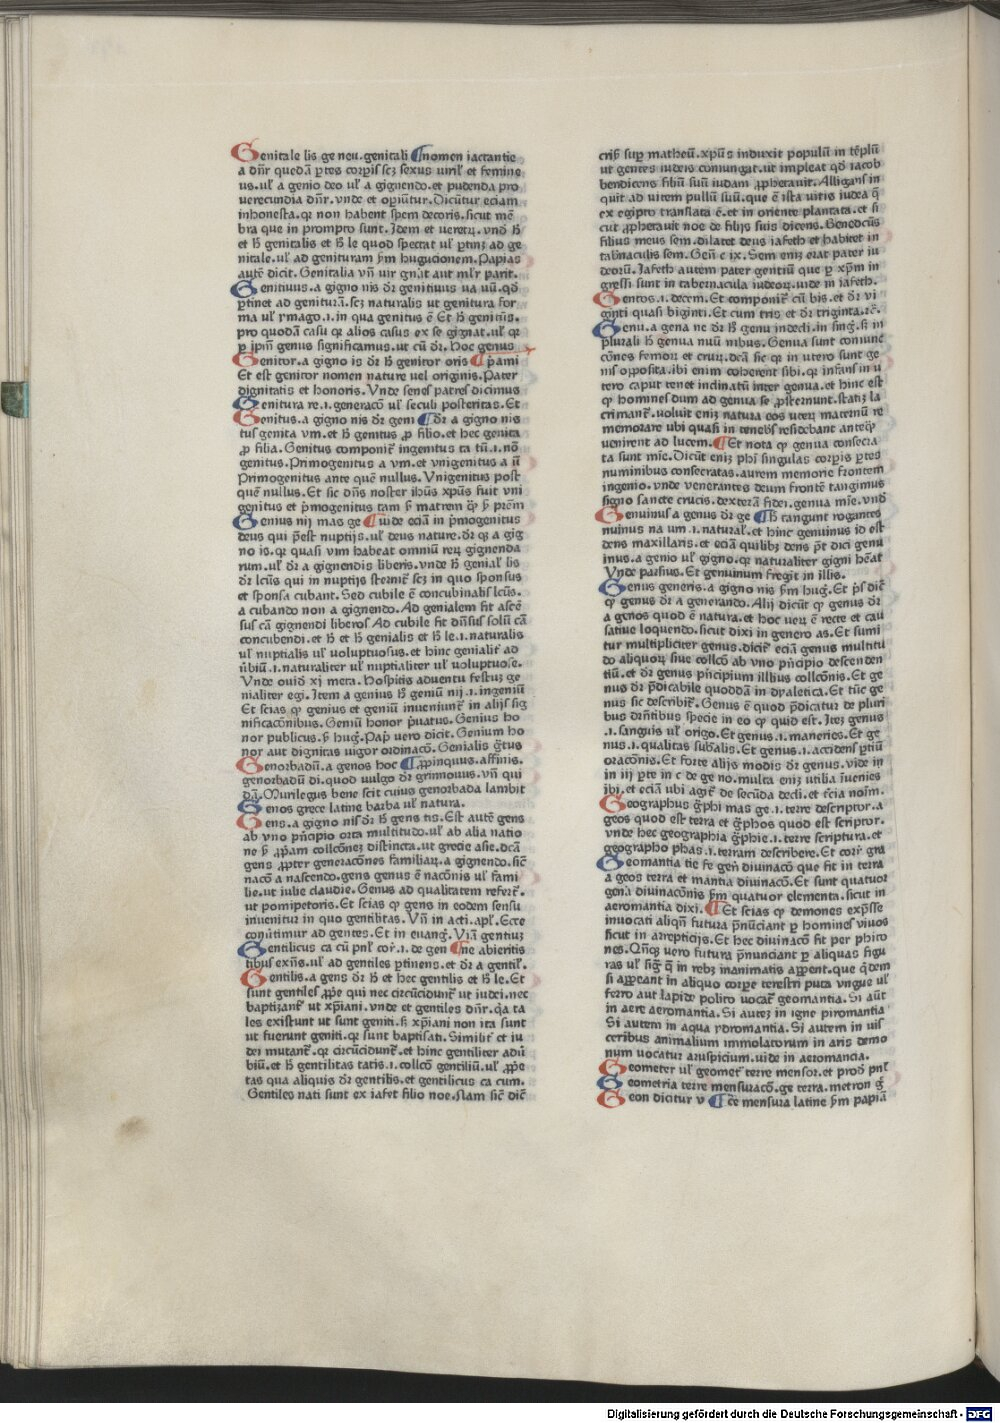 Genitale lis ge neu. genitali ¶nomen iactantie
a dn̄r quedā ꝑtes corꝑis sez sexus uril' et femine
us. ul' a genio deo ul' a gignendo. et pudenda pro
verecundia dn̄r. vnde et oꝑiūtur. Dicūtur eciam
inhonesta. qꝛ non habent spem decoris. sicut mē
bra que in prompto sunt. Idem et veretꝝ. vnđ ħ
et ħ genitalis et ħ le quod spectat ul' ꝑtinz ad ge
nitale. ul' ad genituram ẜm hugucionem. Papias
autē dicit. Genitalia vn̄ uir gn̄at aut ml'r parit.
Genitiuus. a gigno nis dr̄ genitiuus ua uū. qđ
ꝑtinet ad geniturā. sez naturalis ut genitura for
ma ul' ymago .i. in qua genitus ē Et ħ genitiꝰ.
pro quodā casu qꝛ alios casus ex se gignat. ul' qꝛ
ꝑ ip̄m genus significamus. ut cū dr̄. hoc genus
Genitor. a gigno is dr̄ ħ genitor oris ¶priami
Et est genitor nomen nature uel originis. Pater
dignitatis et honoris. Vnde senes patres dicimus
Genitura re .i. generacō ul' seculi posteritas. Et
Genitus. a gigno nis dr̄ geni ¶dr̄ a gigno nis
tus genita vm. et ħ genitus ꝓ filio. et hec genita
ꝓ filia. Genitus componit̄ ingenitus ta tū .i. nō
genitus. Primogenitus a vm. et vnigenitus a ū
Primogenitus ante quē nullus. Vnigenitus post
quē nullus. Et sic dn̄s noster ih̄us xp̄us fuit vni
genitus et p̄mogenitus tam ẜm matrem qꝫ ẜm prēm
Genius nij mas ge ¶uide eciā in p̄mogenitus
deus qui p̄est nuptijs. ul' deus nature. dr̄ qꝛ a gig
no is. qꝛ quasi vim habeat omniū reꝝ gignenda
rum. ul' dr̄ a gignendis liberis. vnde ħ genial' lis
dr̄ lcūs qui in nuptijs sternit̄ sez in quo sponsus
et sponsa cubant. Sed cubile ē concubinalis lcūs.
a cubando non a gignendo. Ad genialem fit ascē
sus cā gignendi liberos Ad cubile fit dn̄sus solū cā
concubendi. et ħ et ħ genialis et ħ le .i. naturalis
ul' nuptialis ul' voluptuosus. et hinc genialit̄ ad
ūbiū .i. naturaliter ul' nuptialiter ul' voluptuose.
Vnde ouiđ xj meta. Hospitis aduentu festuz ge
nialiter egi. Item a genius ħ geniū nij .i. ingeniū
Et scias qꝙ genius et geniū inueniunt̄ in alijs sig
nificacōnibus. Geniū honor p̄uatus. Genius ho
nor publicus. ẜm hug̃. Pap̄ vero dicit. Genium ho
nor aut dignitas uigor ordinacō. Genialis g̃tus
Genorbadū. a genos hoc ¶ꝓpinquus. affinis.
genorbadū di. quod vulgo dr̄ grimonus. vn̄ qui
dā. Murilegus bene scit cuius genorbada lambit
Genos grece latine barba ul' natura.
Gens. a gigno nis dr̄ ħ gens tis. Est autē gens
ab vno p̄ncipio orta multitudo. ul' ab alia natio
ne ẜ ꝓpam collcōnez distincta. ut grecie asie. dc̄a
gens ꝓpter generacōnes familiaꝝ. a gignendo. sic̄
nacō a nascendo. gens genus ē nacōnis ul' fami
lie. ut iulie claudie. Genus ad qualitatem refert̄.
ut pomipetoris. Et scias qꝙ gens in eodem sensu
inuenitur in quo gentilitas. Vn̄ in acti. apl'. Ecce
conūtimur ad gentes. Et in euang̃. Viā gentiuz
Gentilicus ca cū pnl' cor̄ .i. de gen ¶ne abieritis
tibus exn̄s. ul' ad gentiles ꝑtinens. et dr̄ a gentil'.
Gentilis. a gens dr̄ ħ et hec gentilis et ħ le. Et
sunt gentiles ꝓpe qui nec circūcidunt̄ ut iudei. nec
baptizant̄ ut xp̄iani. vnde et gentiles dn̄r. qa ta
les existunt ut sunt geniti. ẜ xp̄iani non ita sunt
ut fuerunt geniti. qꝛ sunt baptisati. Similit̄ et iu
dei mutant̄. qꝛ circūcidunt̄. et hinc gentiliter adū
biū. et ħ gentilitas tatis .i. collcō gentiliū. ul' ꝓpe
tas qua aliquis dr̄ gentilis. et gentilicus ca cum.
Gentiles nati sunt ex iafet filio noe. Nam sic̄ dic̄
criꝰ suꝑ matheū. xp̄us induxit populū in tēplū
ut gentes iudeis coniungat. ut impleat qđ iacob
bendicens filiū suū iudam ꝓpheravit. Alligans in
quit ad vitem pullū suū. que ē ista vitis iudea q̄
ex egipto translata ē. et in oriente plantata. et si
cut ꝓpheravit noe de filijs suis dicens. Benedictus
filius meus sem. dilatet deus iafeth et habitet in
tabnaculis sem. Gen̄ c ix. Sem eniz erat pater iu
deoꝝ. Iafeth autem pater gentiū que ꝑ xp̄m in
gressi sunt in tabernacula iudeoꝝ. vide in iafeth.
Gentos .i. decem. Et componit̄ cū bis. et dr̄ vi
ginti quasi biginti. Et cum tris et dr̄ triginta. ꝛc̄.
Genu. a gena ne dr̄ ħ genu indecli. in sing̃. ẜ in
plurali ħ genua nuū nibus. Genua sunt coniunc
cōnes femoꝝ et cruꝝ. dc̄a sic qꝛ in utero sunt ge
nis opposita. ibi enim coherent sibi. qꝛ infans in u
tero caput tenet inclinatū inter genua. et hinc est
qꝙ homines dum ad genua se ꝓsternunt. statiz la
crimant̄. voluit eniz natura eos uteꝝ maternū re
memorare ubi quasi in tenebꝭ residebant anteqꝫ
venirent ad lucem. ¶Et nota qꝙ genua consecra
ta sunt mīe. Dicūt eniz phi singulas corꝑis ꝑtes
numinibus consecratas. aurem memorie frontem
ingenio. vnde venerantes deum frontē tangimus
signo sancte crucis. dexterā fidei. genua mīe. vnđ
Genuinus a genus dr̄ ge ¶ħ tangunt rogantes
nuinus na um .i. natural'. et hinc genuinus id est
dens maxillaris. et eciā quilibz dens p̄t dici genu
inus. a genio ul' gigno. qꝛ naturaliter gigni hēat
Vnde parsius. Et genuinum fregit in illis.
Genus generis. a gigno nis ẜm hug̃. Et p̄s dic̄
qꝙ genus dr̄ a generando. Alij dicūt qꝙ genus dr̄
a genos quod ē natura. et hoc ueꝝ ē recte et cau
satiue loquendo. sicut dixi in genero as. Et sumi
tur multipliciter genus. dicit̄ eciā genus multitu
do aliquoꝝ siue collcō ab vno p̄ncipio descenden
tiū. et dr̄ genus p̄ncipium illius collcōnis. Et ge
nus dr̄ p̄dicabile quoddā in dyaletica. Et tūc ge
nus sic describit̄. Genus ē quod p̄dicatur de pluri
bus drn̄tibus specie in eo qꝙ quid est. Itez genus
.i. sanguis ul' origo. Et genus .i. maneries. Et ge
nus .i. qualitas sub̄alis. Et genus .i. accidens ꝑtiū
oracōnis. Et forte alijs modis dr̄ genus. vide in
in iij ꝑte in c de ge no. multa eniz utilia īuenies
ibi. et eciā ubi agit̄ de secūda decli. et t̄cia noīm.
Geographus g̃phi mas ge .i. terre descriptor. a
geos quod est terra et g̃phos quod est scriptor.
vnde hec geographia g̃phie .i. terre scriptura. et
geographo phas .i. terram describere. Et corr̄ gra
Geomantia tie fe gen̄ diuinacō que fit in terra
a geos terra et mantia diuinacō. Et sunt quatuor
gen̄a diuinacōnis ẜm quatuor elementa. sicut in
aeromantia dixi. ¶Et scias qꝙ demones exp̄sse
inuocati aliqn̄ futura p̄nūciant ꝑ homines viuos
sicut in arrepticijs. Et hec diuinacō fit per phito
nes. Qn̄qꝫ vero futura p̄nunciant ꝑ aliquas figu
ras ul' sig̃ q̄ in rebꝫ inanimatis apꝑent. que q̄dem
si apꝑeant in aliquo corꝑe terestri puta vngue ul'
ferro aut lapide polito vocat̄ geomantia. Si aūt
in aere aeromantia. Si autez in igne piromantia
Si autem in aqua ydromantia. Si autem in uis
ceribus animalium immolatorum in aris demo
num vocatur aruspicium. uide in aeromancia.
Geometer ul' geomet̄ terre mensor. et prod̄ pnl'
Geometria terre mensuracō. ge terra. metron g̃
Geon dicitur v ¶ce mensura latine ẜm papiā
Digitalisierung gefördert durch die Deutsche Forschungsgemeinschaft - DFG